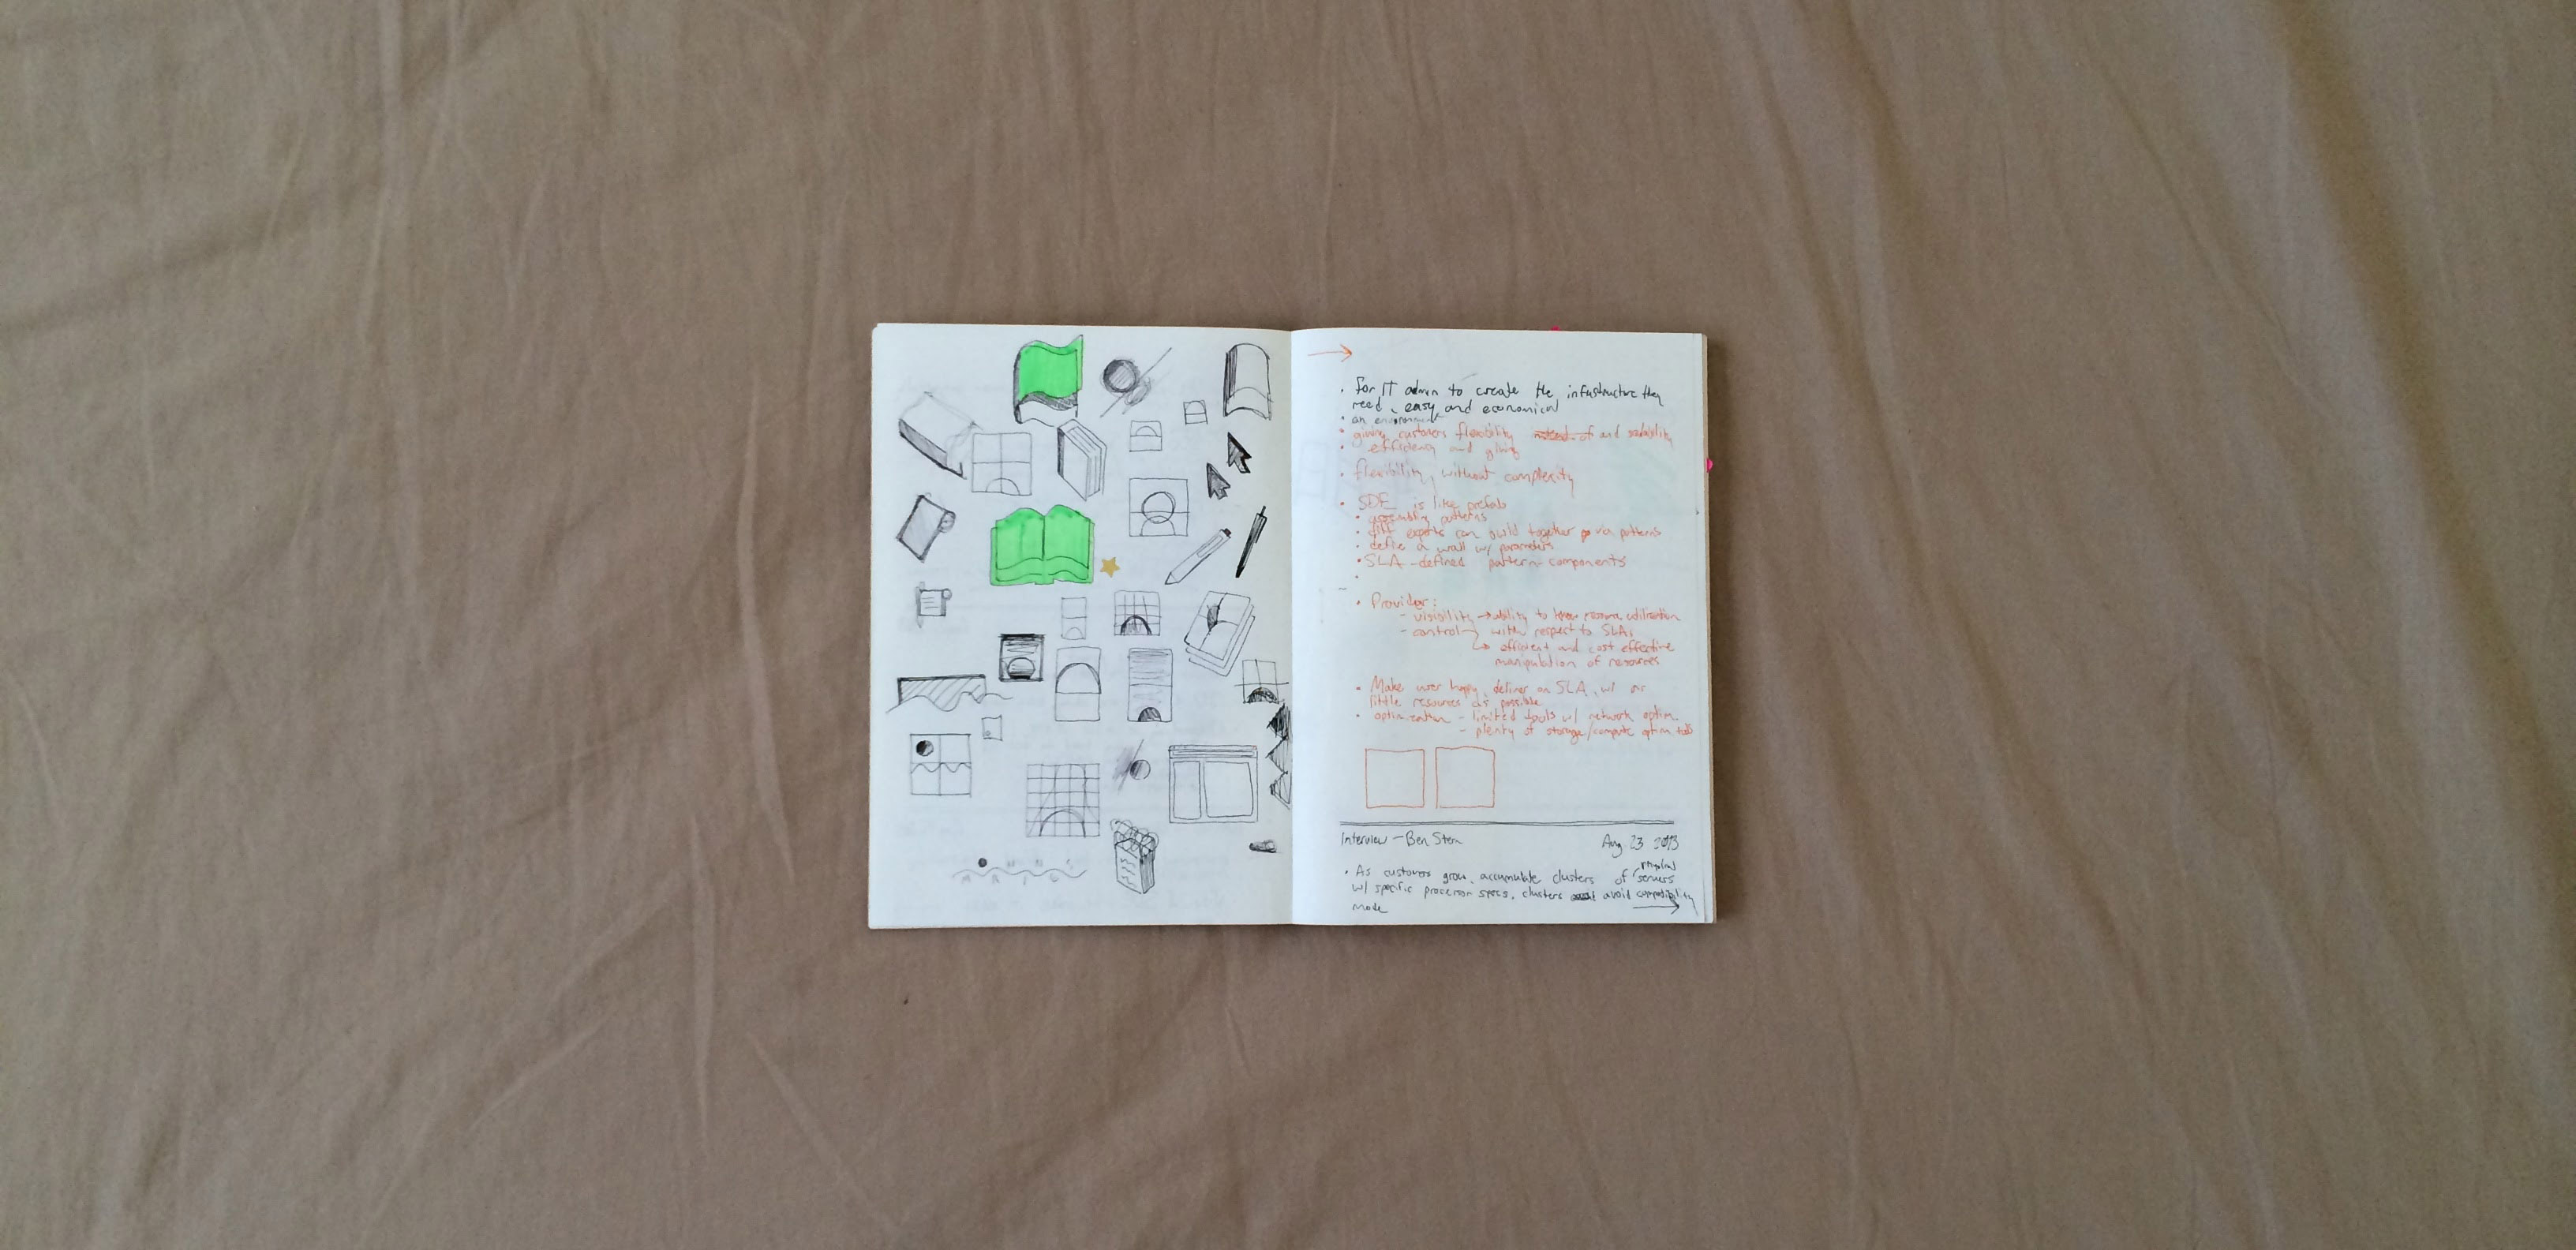 • for IT admin to create the infustructure they
need, easy and economical
• an environment
• giving customers flexibility instead of and scalability
• efficiency and giving
• flexibility, without complexity
• SDE is like prefab
• assembling patterns
• diff experts can build together via patterns
• define a wall w/ parameters
• SLA-defined pattern components
• Provider:
- visibility → ability to know resource utilization
- control → with respect to SLAs
↳ efficient and cost effective
manipulation of resources
• Make user happy, deliver on SLA, w/ as
little resources as possible
• optimization - limited tools w/ network optim.
- plenty of storage/compute optim tools
Interview - Ben Stern Aug 23 2013
physical
• As customers grow, accumulate clusters of servers
w/ specific processor specs, clusters avoid compatibility
mode